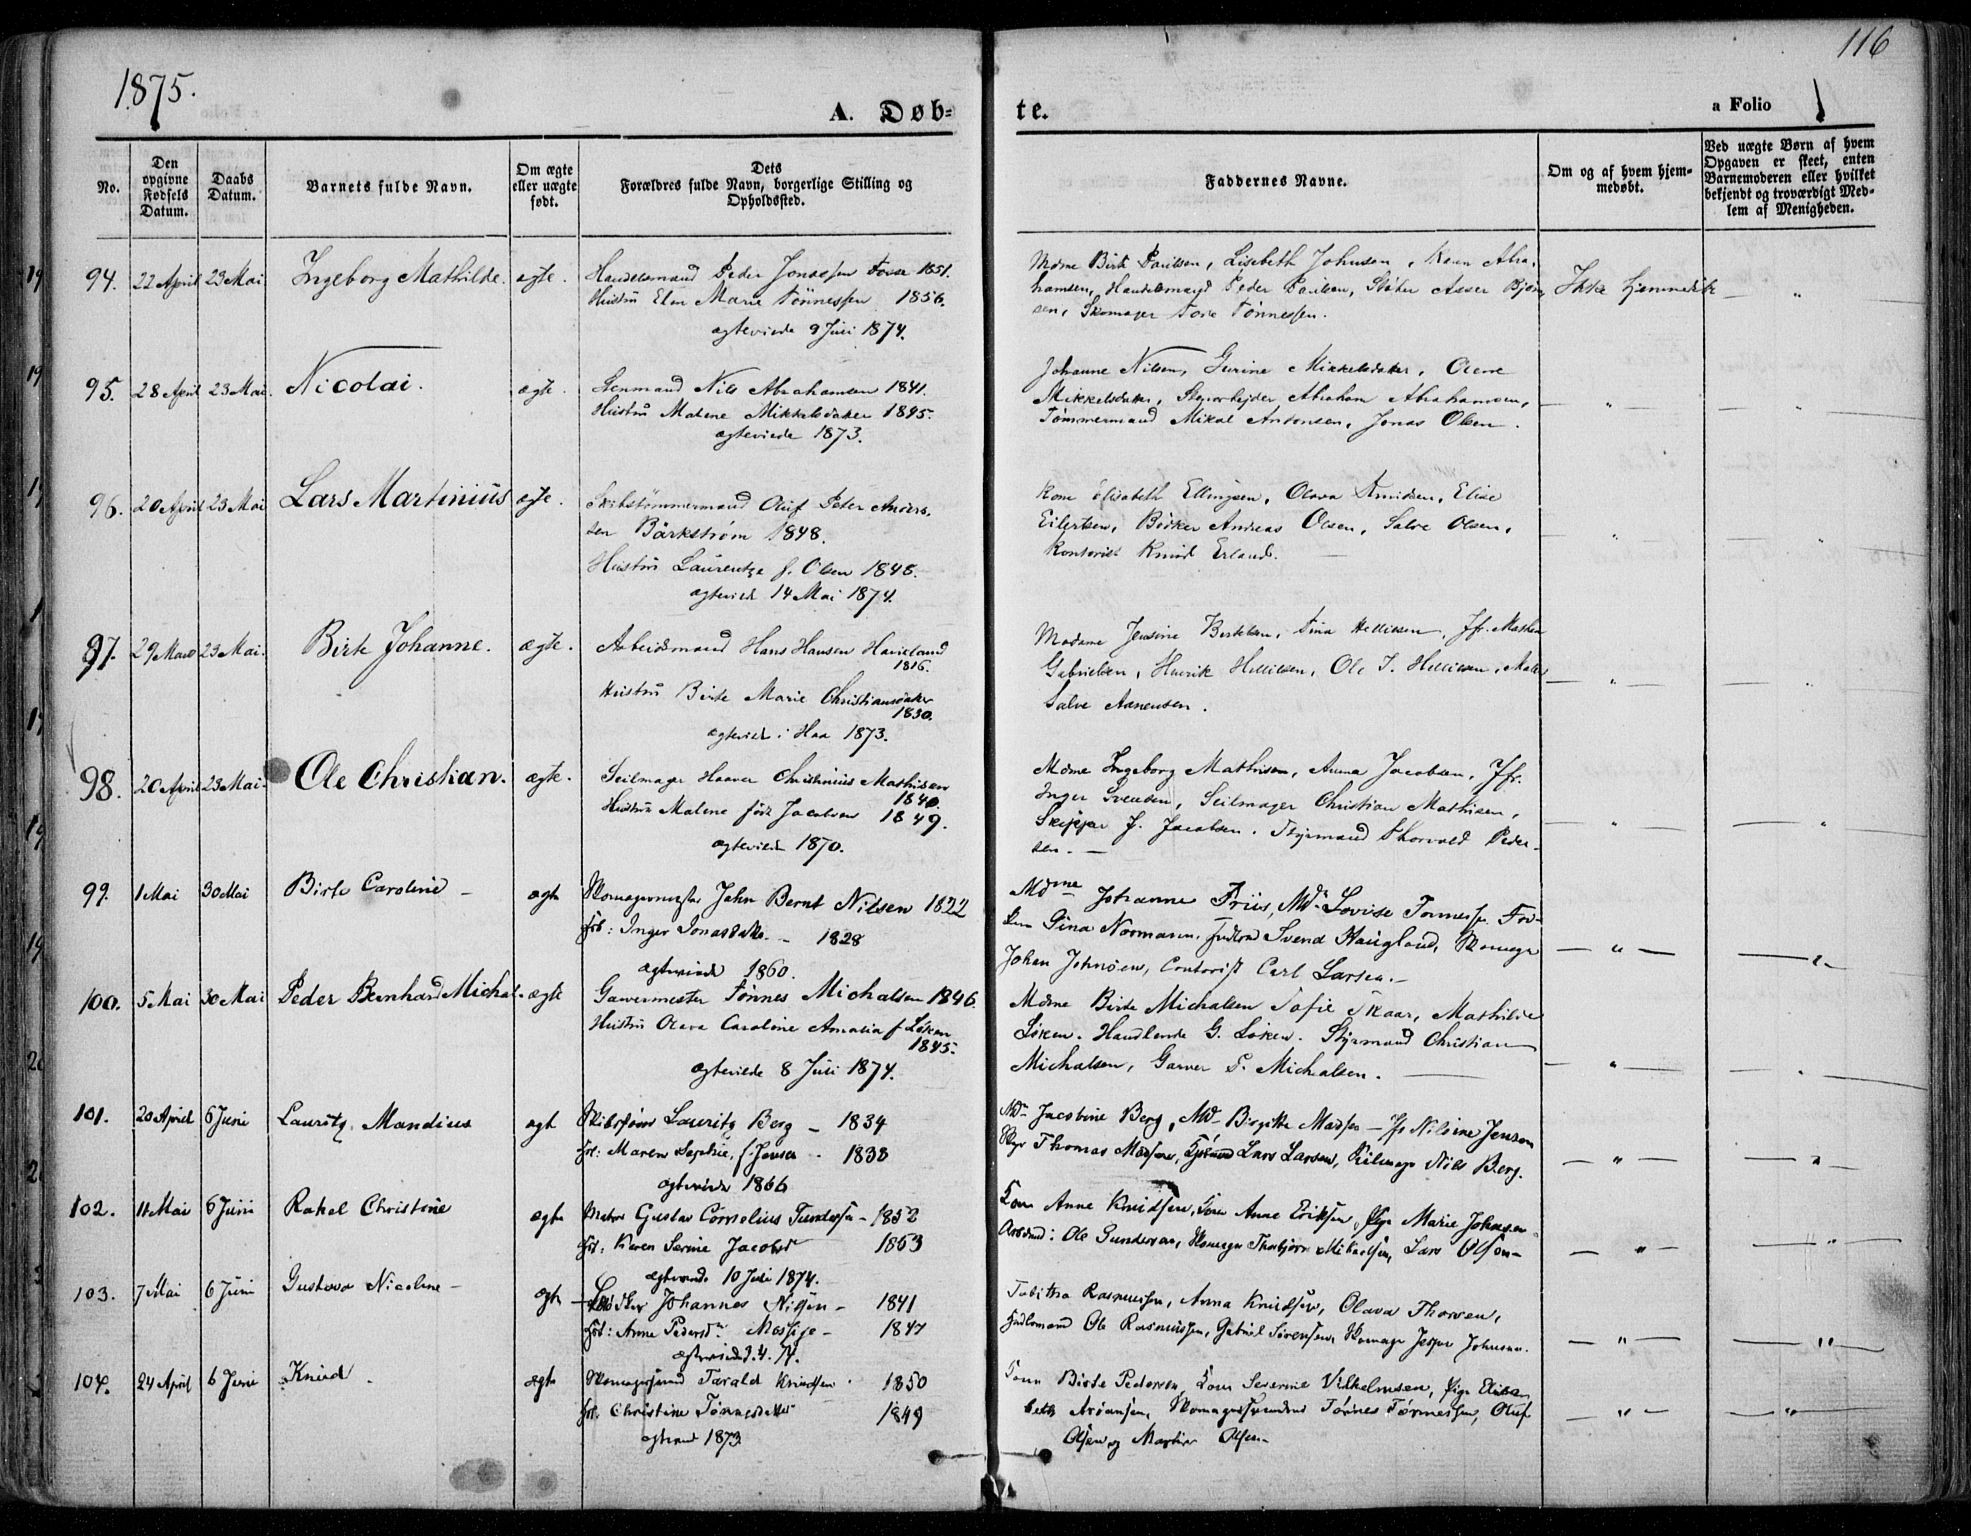 1875.
116
A. Døb-
te.
a Folio
No.
Den opgivne Fødsels Datum.
Daabs Datum.
Barnets fulde Navn.
Om ægte eller uægte født.
Dets Forældres fulde Navn, borgerlige Stilling og Opholdssted.
Faddernes Navne.
Om og af hvem hjemmedøbt.
Ved uægte Børn af hvem Opgaven er skeet, enten Barnemoderen eller hvilket bekjendt og troværdigt Medlem af Menigheden.
94. 22 April 23 Mai Ingeborg Mathilde. ægte. Handelsmand Peder Jonassen Fosse 1851.
Hustru Elen Marie Tønnessen 1856.
ægteviede 9 Juli 1874.
Mdme Birte Paulsen, Lisebeth Johnsen, Kone Abra-
hamsen, Handelsmand Peder Paulsen, Asser Bjørn
sen, Skomager Tore Tønnessen.
Ikke hjemmedøbt
95. 28 April 23 Mai. Nicolai. ægte. Stenmand Nils Abrahamsen 1841.
Hustru Malene Mikkelsdatter 1845.
ægteviede 1873.
Johanne Nilsen, Gurine Mikkelsdatter, Olene
Mikkelsdatter, Abraham Abrahamsen,
Tømmermand Mikal Antonsen, Jonas Olsen.
96. 20 April 23 Mai Lars Martinius ægte. Skibstømmermand Oluf Peter Anders-
sen Bärkstrøm 1848.
Hustru Laurentze f. Olsen 1848.
ægteviede 14 Mai 1874.
Kone Elisabeth Ellingsen, Olava Arnidsen, Elise
Eilertsen, Bødker Andreas Olsen, Salve Olsen,
Kontorist Knud Erland.
97. 29 Mars 23 Mai. Birte Johanne. ægte. Arbeidsmand Hans Hansen Haveland
1816.
Hustru Birte Marie Christiansdatter
1830.
ægteviede i Haa 1873.
Madame Jensine Bertelsen, Tina Helliesen, Jfr. Mathea
Gabrielsen, Henrik Helliesen, Ole T. Helliesen, Maler
Salve Asnensen.
98. 20 April 23 Mai. Ole Christian. ægte. Seilmager Haaver Christinius Mathisen
1840.
Hustru Malene född Jacobsen 1849.
ægteviede 1870.
Mdme Ingeborg Mathisen, Anna Jacobsen, Jfr.
Inger Svendsen, Seilmager Christian Mathisen,
Skipper J. Jacobsen. Styrmand Thorvald Peder-
sen.
99. 1 Mai 30 Mai Birte Caroline ægte Skomagermester John Bernt Nilsen 1822
Hst: Inger Jonasdatter. 1828
ægteviede 1860.
Mdme Johanne Friis, Md. Lovise Tønnessen, Frø-
ken Gina Normann, Svend Haugland, Skomager
Johan Johnsen, Contorist Carl Larsen.
100. 5 Mai 30 Mai Peder Bernhard Michal. ægte Garvermester Tønnes Michalsen 1846
Hustru Olava Caroline Amalia f Løken
1845.
ægteviede 8 Juli 1874.
Mdme Birte Michalsen Tofie Skaar, Mathilde
Løken. Handlende G. Løken. Styrmand Christian
Michalsen, Garver T. Michalsen.
101. 20 April 6 Juni Lauritz Mandius ægte Lauritz Berg 1834
Hst: Maren Sophie, f. Jensen 1838
ægteviede 1866
Md. Jacobine Berg, Md. Birgitte Madsen Jfr Nilsine Jensen
Thomas Madsen, Lars Larsen, Seilmager Nils Berg.
102. 11 Mai 6 Juni Rakel Christine ægte Matros Gustav Cornelius Gundersen 1852
Hst: Karen Serine Jacobsd 1853
ægteviede 10 Juli 1874.
Kone Anne Knudsen, Kone Anne Eriksen, Pige Marie Johnsen
Arbmd: Ole Gundersen, Skomager Thorbjørn Mikaelsen, Lars Olsen
103. 7 Mai 6 Juni Gustava Nicoline ægte Johannes Nilsen 1841
Hst: Anne Pedersd. Mossige 1847
ægteviede 3.4.74.
Tabitha Rasmussen, Anna Knudsen, Olava Thorsen,
Handelsmand Ole Rasmussen, Gabriel Sørensen, Skomager Jesper Johnsen.
104. 24 April 6 Juni Knud. ægte Skomagersvend Tarald Knudsen 1850
Hst: Christine Tønnesdatter 1849
ægteviede 1873
Kone Birte Pedersen, Kone Severine Vilhelmsen, Pige Elisa-
beth Aroansen, Skomagersvendene Tønnes Tønnessen, Oluf
Olsen og Martin Olsen